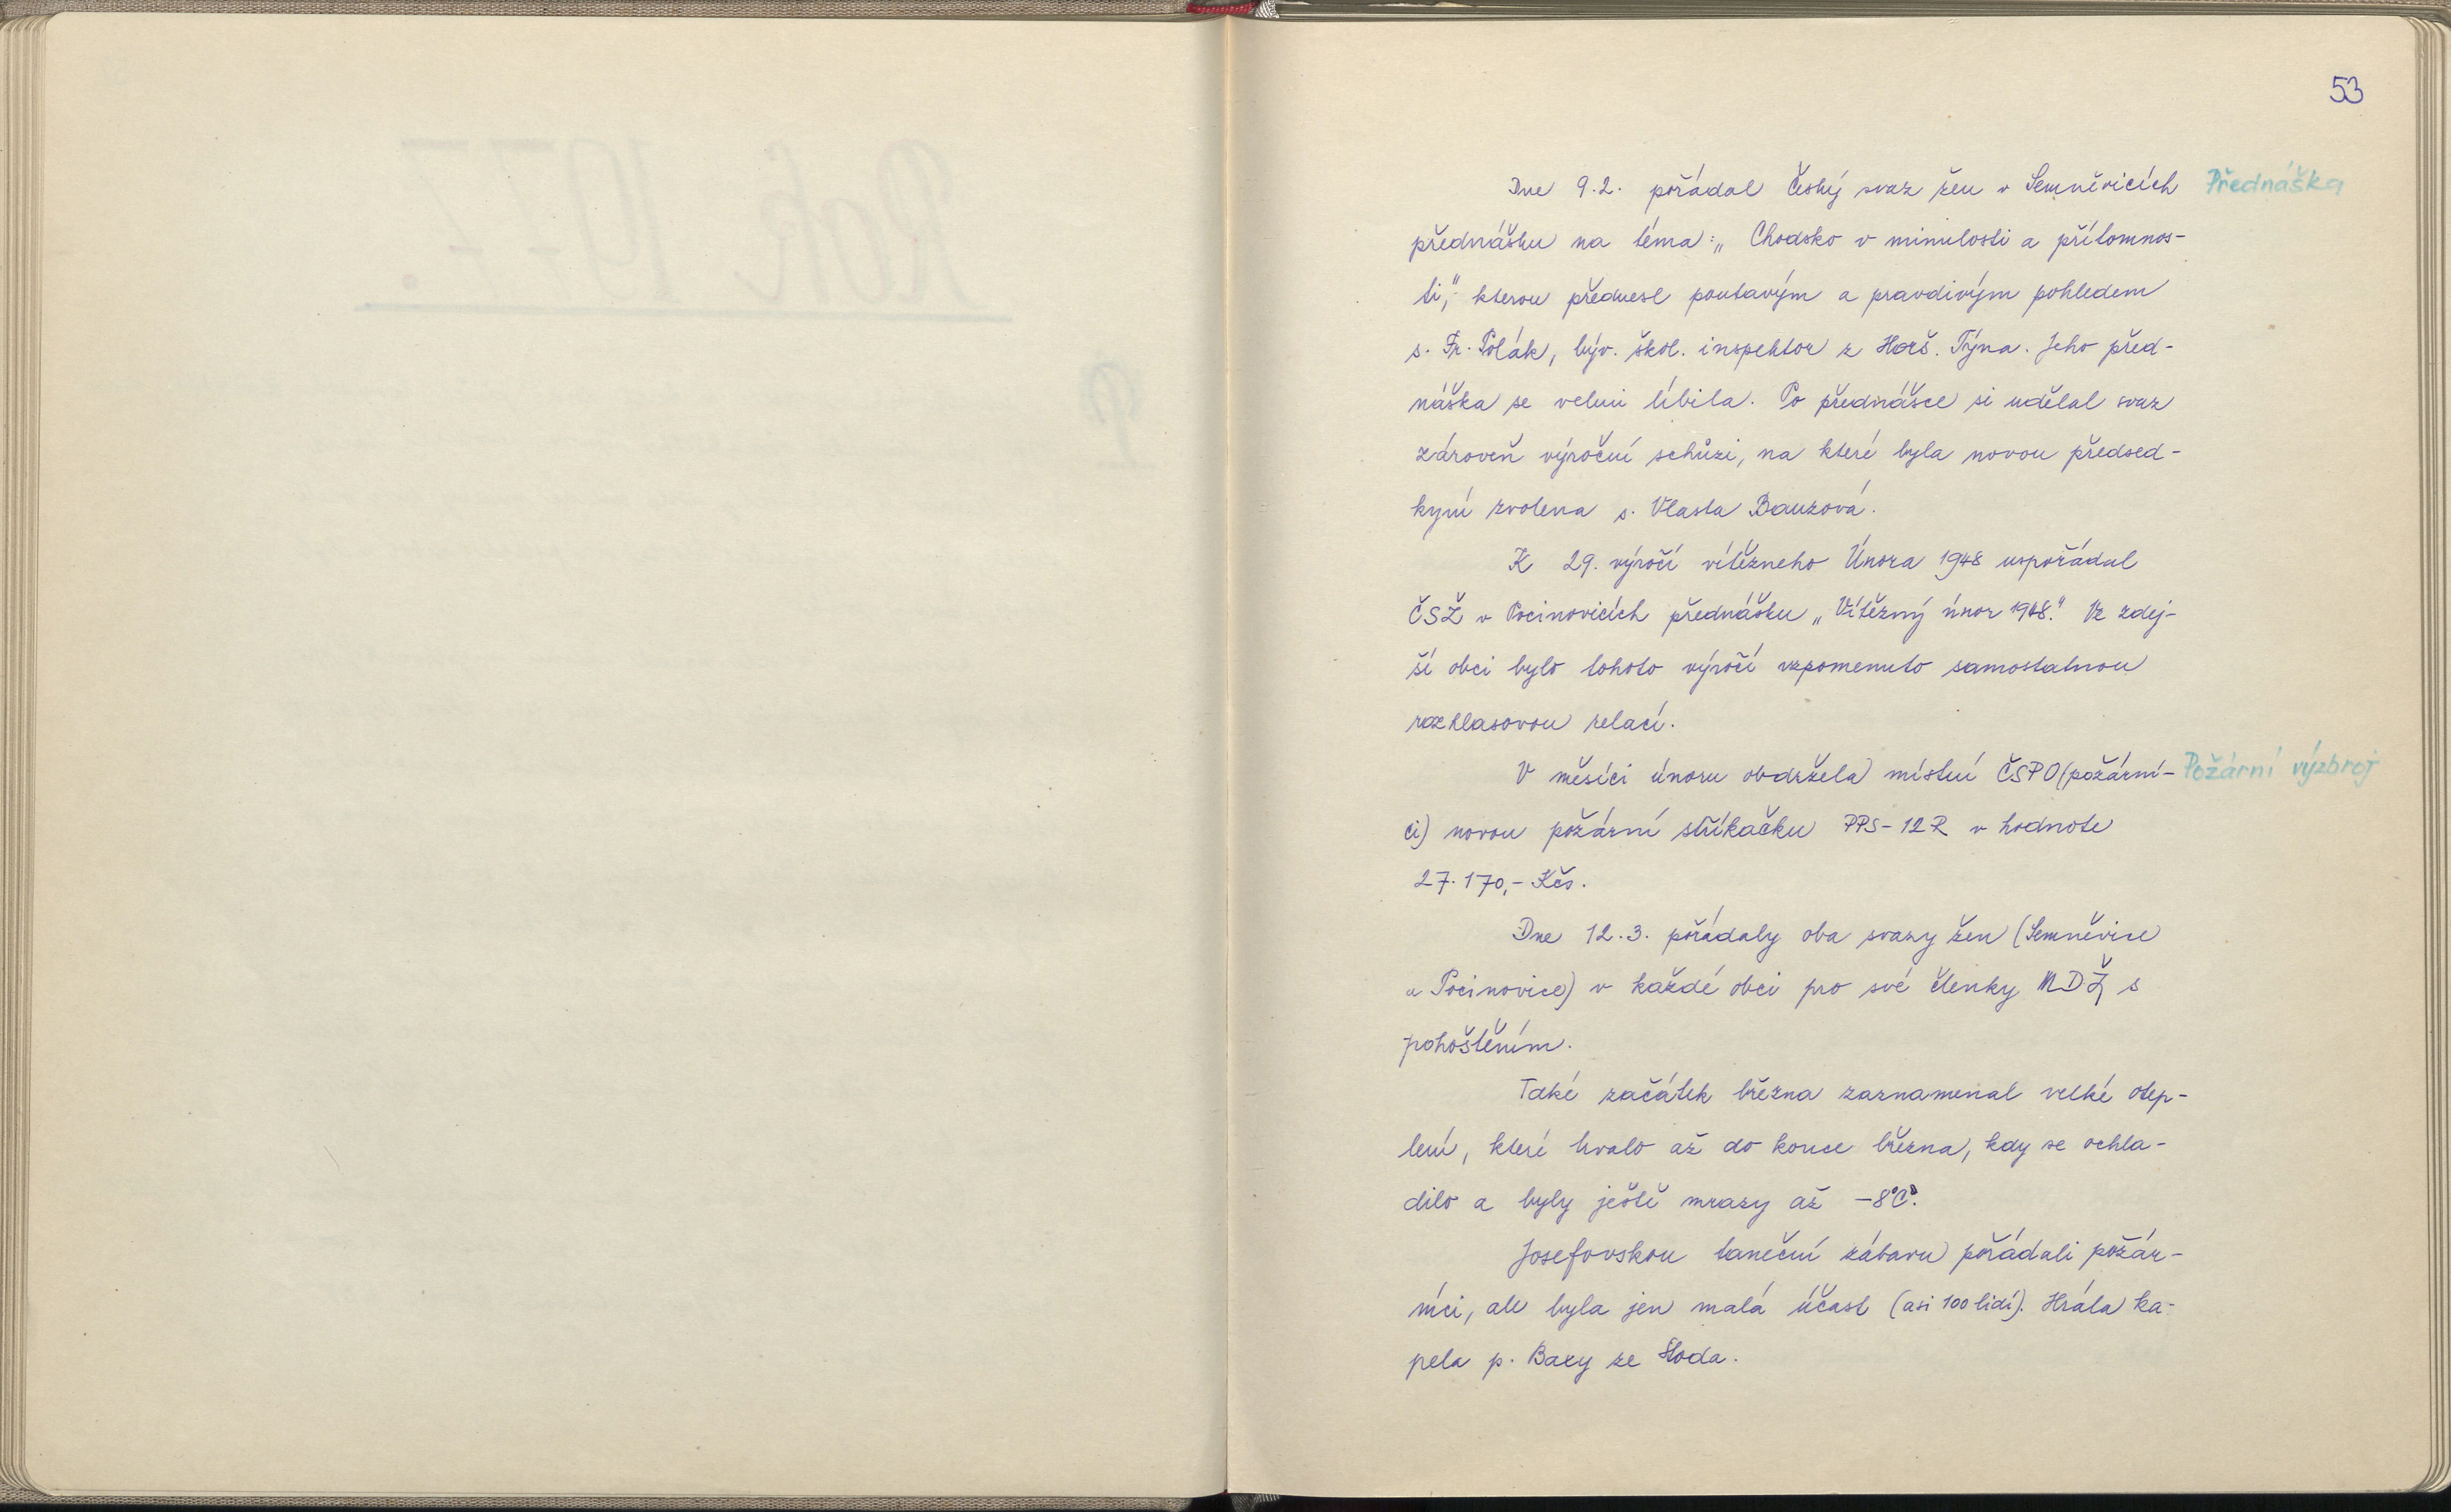 53
Dne 9.2. pořádal Český svaz žen v Semněvicích Přednáška
přednášku na téma: „Chodsko v minulosti a přítomnos-
ti," kterou přednesl poutavým a pravdivým pohledem
s. Fr. Polák, býv. škol. inspektor z Horš. Týna. Jeho před-
náška se velmi líbila. Po přednášce si udělal svaz
zároveň výroční schůzi, na které byla novou předsed-
kyní zvolena s. Vlasta Bauzová.
K 29. výročí vítězneho Února 1948 uspořádal
ČSŽ v Pocinovicích přednášku „Vítězný únor 1948." Ve zdej-
ší obci bylo tohoto výročí vzpomenuto samostatnou
rozhlasovou relací.
V měsíci únoru obdržela místní ČSPO (požární- Požární výzbroj
ci) novou požární stříkačku PPS-12R v hodnote
27.170,- Kčs.
Dne 12.3. pořádaly oba svazy žen (Semněvice
a Pocinovice) v každé obci pro své členky MDŽ s
pohoštěním.
Také začátek března zaznamenal velké otep-
lení, které trvalo až do konce března, kdy se ochla-
dilo a byly ještě mrazy až -8°C.
Josefovskou taneční zábavu pořádali požár-
níci, ale byla jen malá účast (asi 100 lidí). Hrála ka-
pela p. Baxy ze Stoda.